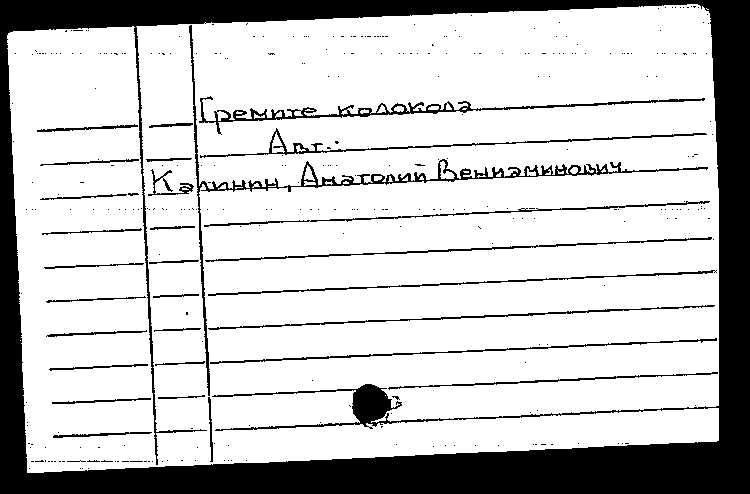 Гремите колокола
Авт.:
Калинин, Анатолий Вениаминович.